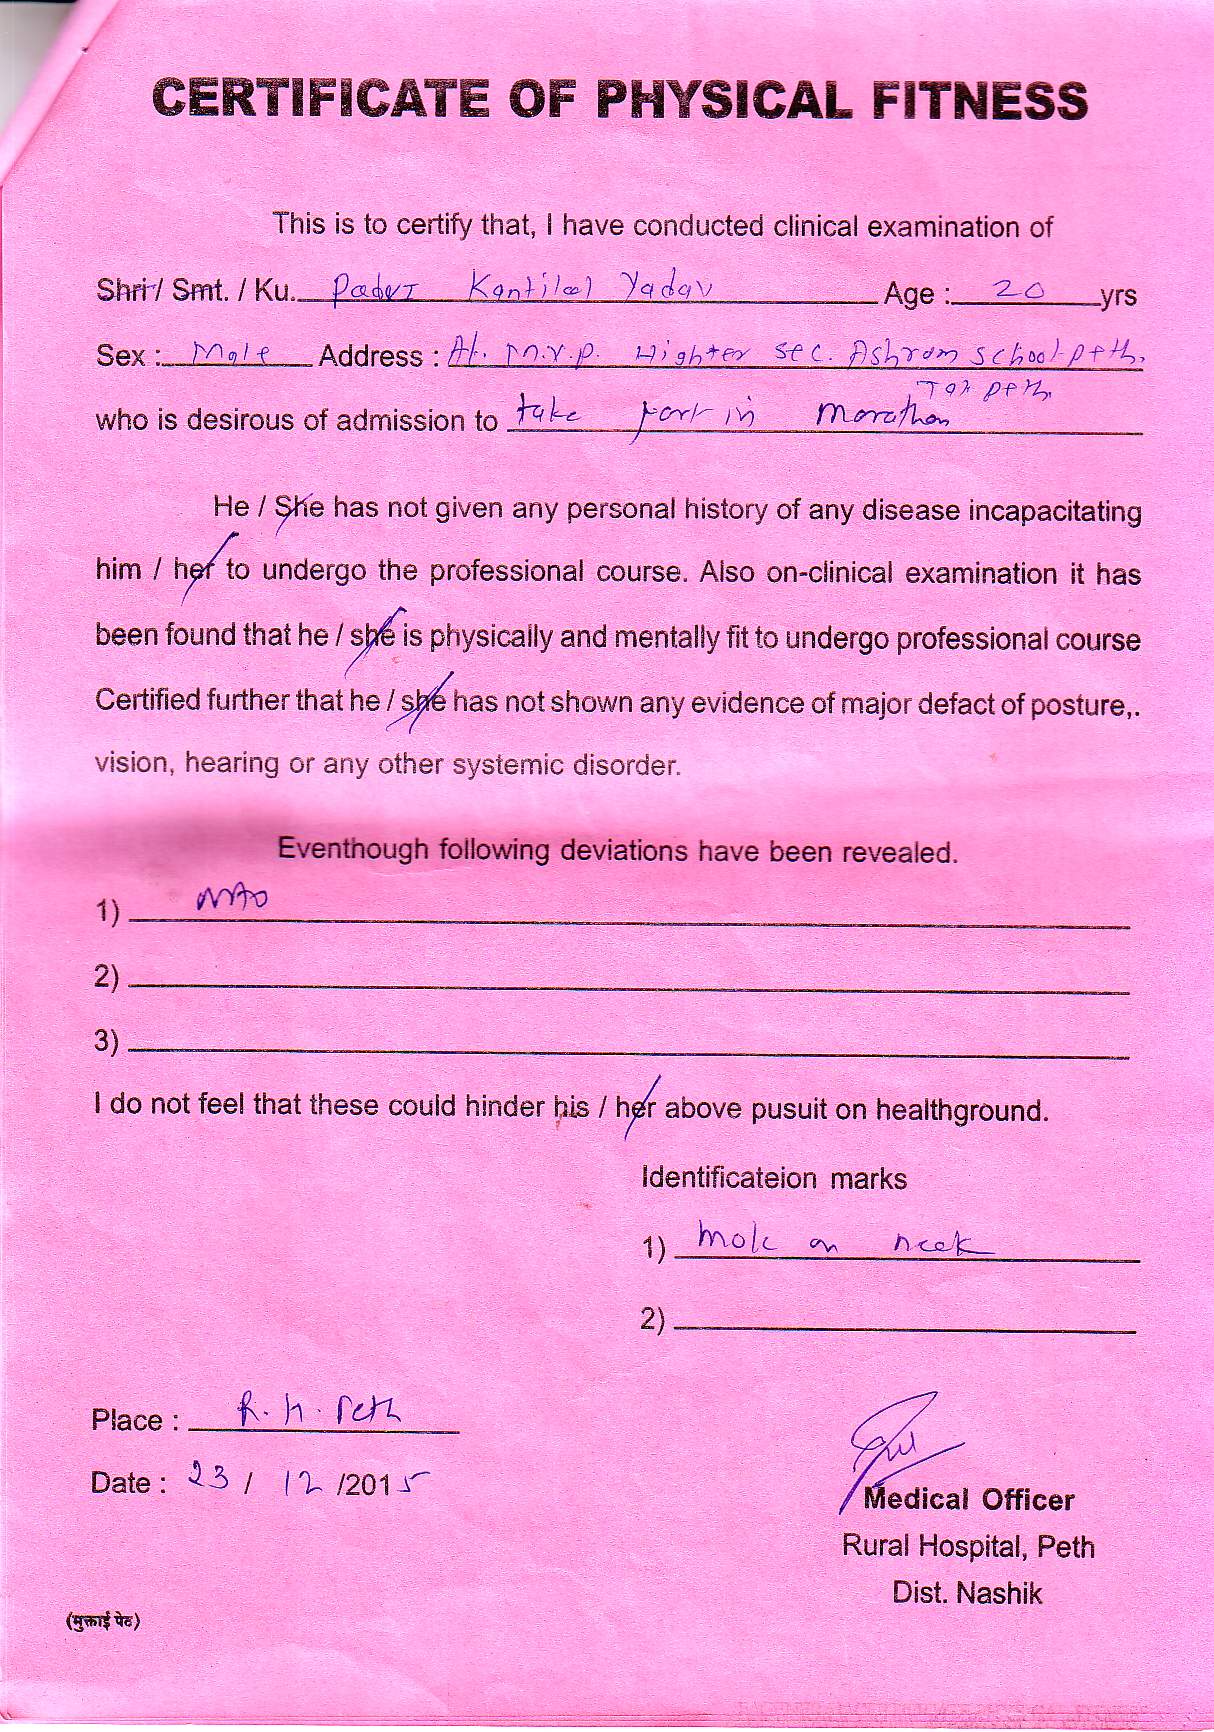 CERTIFICATE OF PHYSICAL FITNESS
This is to certify that, I have conducted clinical examination of
Shri / Smt. / Ku. Padvi Kantilal Yadav Age : 20 yrs
Sex : Male Address : At. M.V.P. Highter sec. Ashram school peth,
Tal peth.
who is desirous of admission to take part in marathon
He / She has not given any personal history of any disease incapacitating
him / her to undergo the professional course. Also on-clinical examination it has
been found that he / she is physically and mentally fit to undergo professional course
Certified further that he / she has not shown any evidence of major defact of posture,.
vision, hearing or any other systemic disorder.
Eventhough following deviations have been revealed.
1)
2)
3)
I do not feel that these could hinder his / her above pusuit on healthground.
Identificateion marks
1) mole on neck
2)
Place : R. H. Peth
Date : 23 / 12 /2015
Medical Officer
Rural Hospital, Peth
Dist. Nashik
(मुक्ताई पेठ)